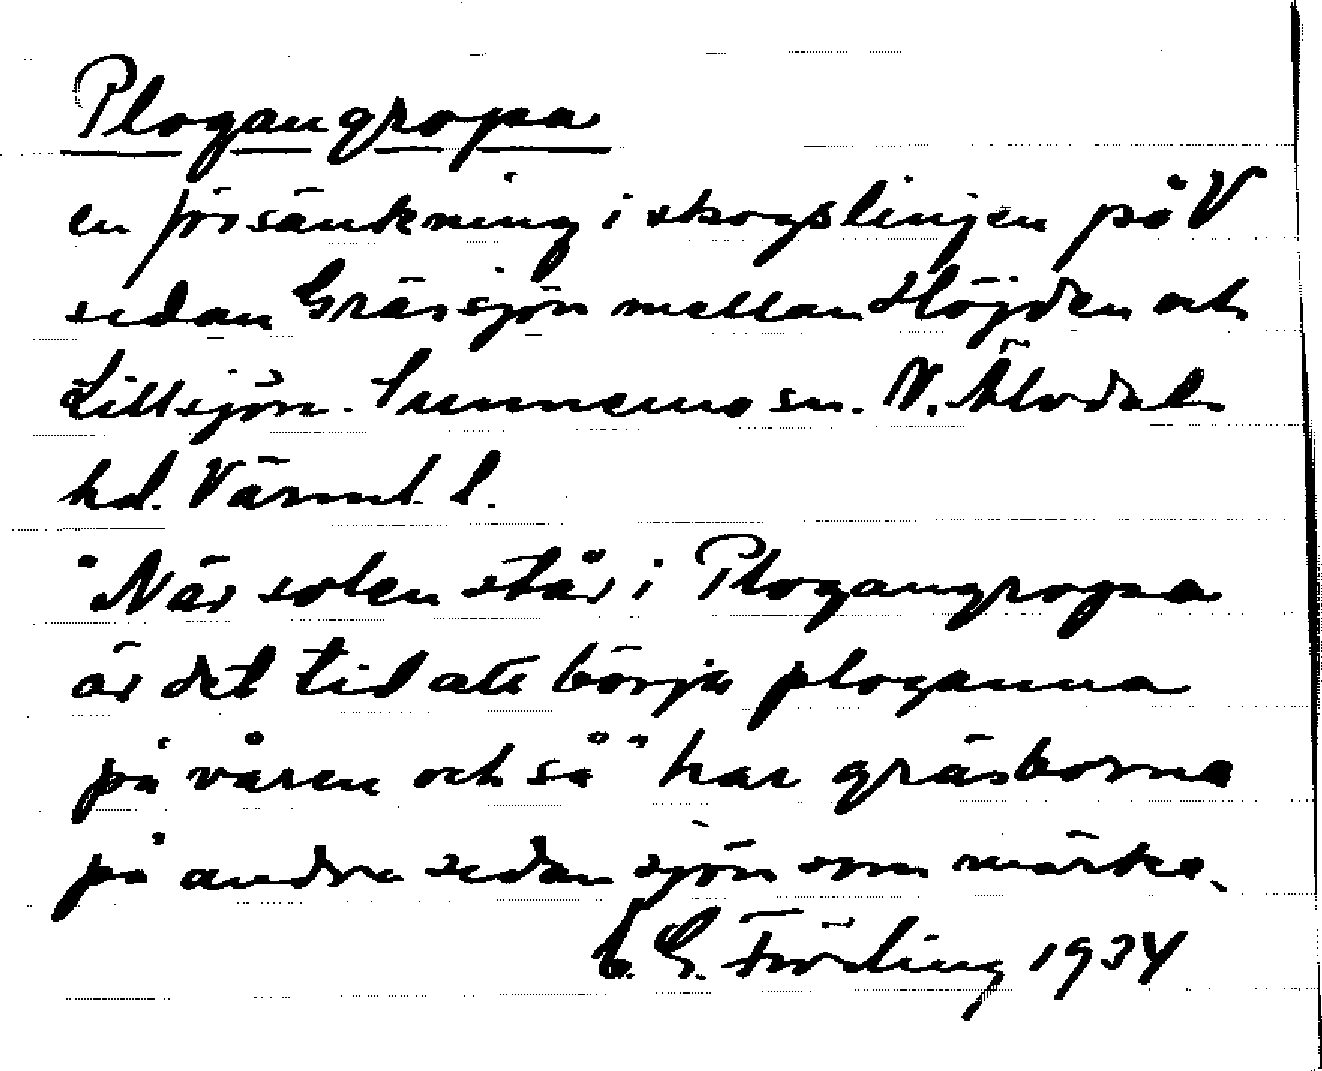 Plogangropa
en försänkning i skogslinjen på V
sidan Grässjön mellan Höjden och
Lillsjön. Sunnemo sn. V. Älvdals
hd. Värml. l.
"När solen står i Plogangropa
är det tid att börja ploganna
på våren och så" har gräsborna
på andra sidan sjön som märke.
C. G. Fröding 1934